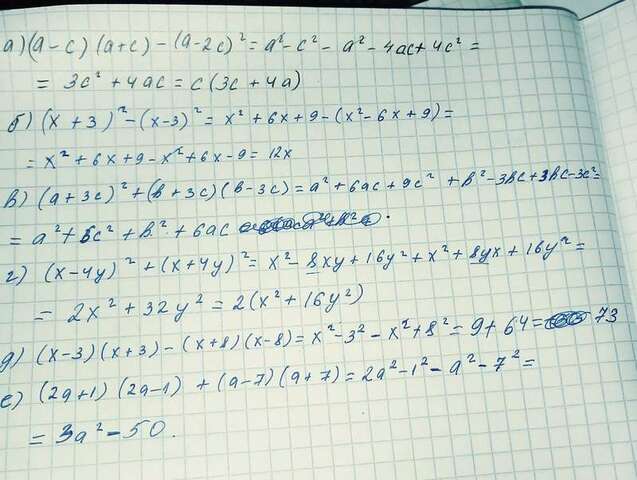 а) (a-c) (a+c) - (a-2c)² = a² - c² - a² - 4ac + 4c² =
= 3c² + 4ac = c (3c + 4a)
б) (x + 3)² - (x-3)² = x² + 6x + 9 - (x² - 6x + 9) =
= x² + 6x + 9 - x² + 6x - 9 = 12x
в) (a + 3c)² + (b + 3c) (b - 3c) = a² + 6ac + 9c² + b² - 3bc + 3bc - 3c² =
= a² + 6c² + b² + 6ac
г) (x - 4y)² + (x + 4y)² = x² - 8xy + 16y² + x² + 8yx + 16y² =
= 2x² + 32y² = 2(x² + 16y²)
д) (x-3) (x+3) - (x+8) (x-8) = x² - 3² - x² + 8² = 9 + 64 = 73
е) (2a+1) (2a-1) + (a-7) (a+7) = 2a² - 1² - a² - 7² =
= 3a² - 50.